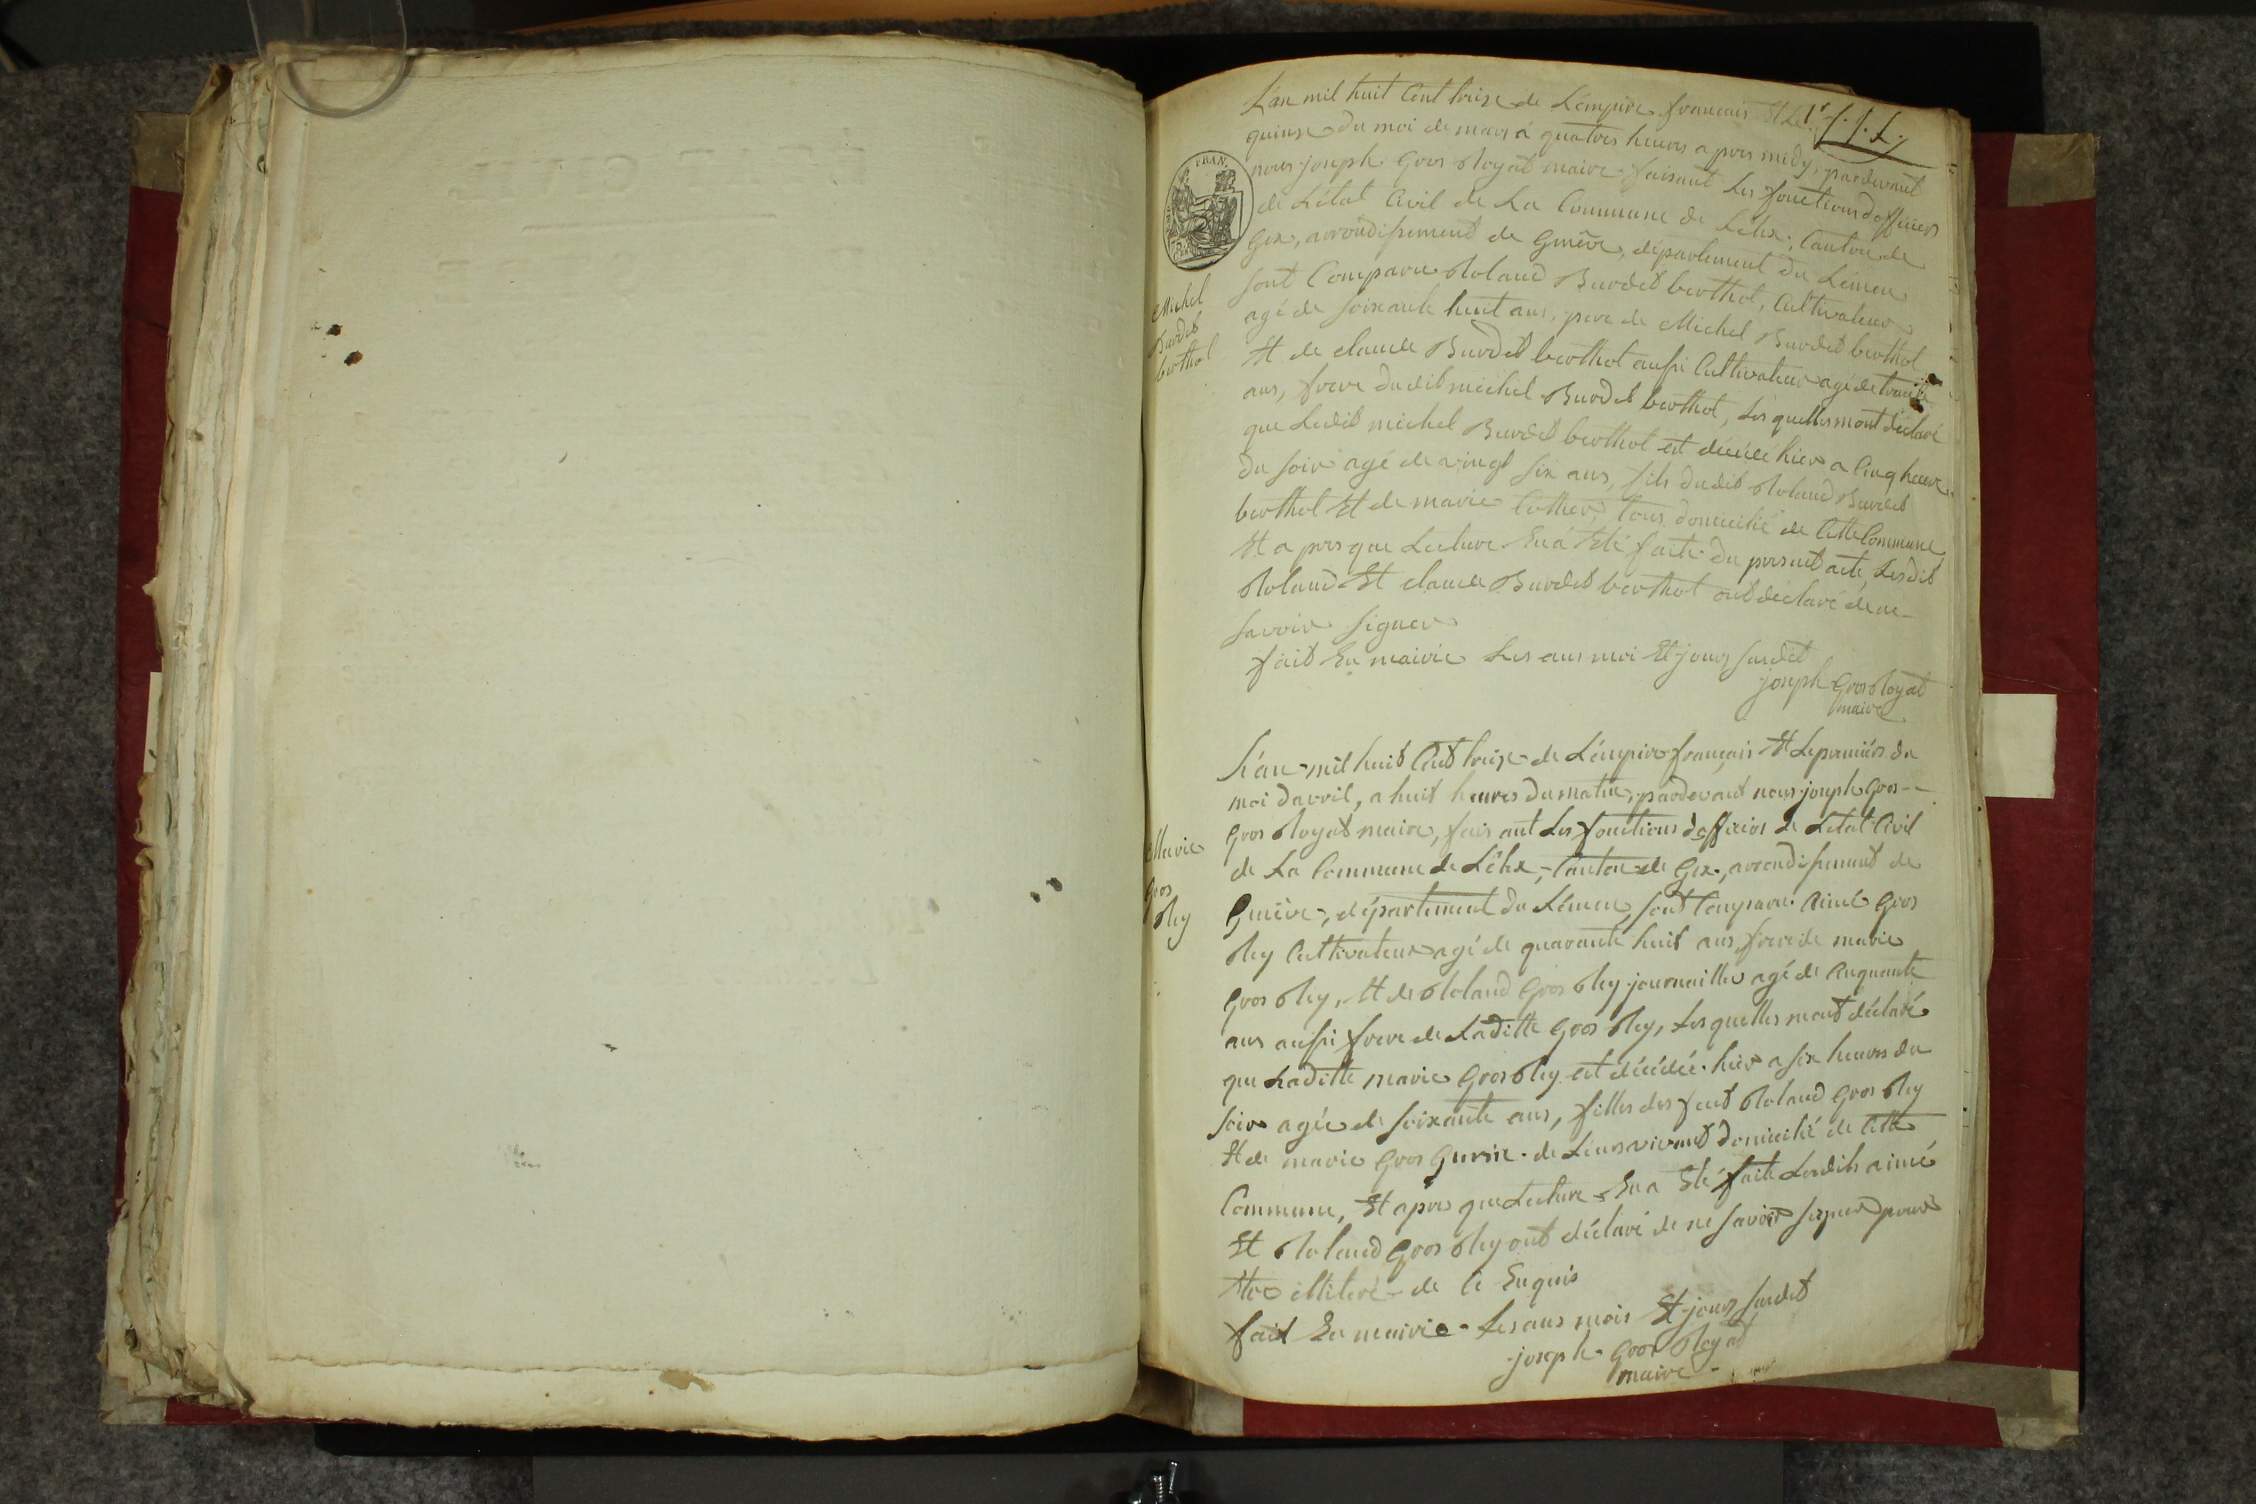 L'an mil huit Cent treize de L'émpire francais Et Le
1r f. J. L.
quinze du moi de mars á quatres heures a pres midy, pardevant
nous joseph Gros Royat maire faisant Les fonctions d'officiers
de L'état Civil de La Commune de Léhx, Canton de
Gex, arrondissement de Genêve, département du Léman
sont Comparu Roland Burdet berthot, Cultivateur
agé de soixante huit ans, pere de Michel Burdet berthot
Et de claude Burdet berthot aussi Cultivateur agé de trente
ans, frere dudit michel Burdet berthot, Les quelles mont déclaré
que Ledit michel Burdet berthot est décédé hier a Cinq heure
du soir agé de vingt six ans, fils dudit Roland Burdet
berthot Et de marie Cottier, tous domicilié de Cette Commune
Et a pres que Lecture En a Eté faite du present acte, Lesdit
Roland Et claude Burdet berthot ont déclaré de ne
savoir signer
fait En mairie Les ans moi Et jours susdit
joseph Gros Royat
maire
Michel
Burdet
berthot
FRAN.
L'an mil huit Cent treize de L'émpire français Et Le premiér du
moi d'avril, a huit heures du matin, pardevant nous joseph Gros
Gros Royat maire, fais ant Les fonctions d'officier de L'etat Civil
de La Commune de Léhx, Canton de Gex, arrondissement de
Genêve, département du Léman, sont Comparu Aimé Gros
Rey Cultivateur agé de quarante huit ans, frere de marie
Gros Rey, Et de Roland Gros Rey journaillier agé de Cinquante
ans aussi frere de Laditte Gros Rey, Les quelles mont déclaré
que Laditte marie Gros Rey est décédée hier a six heures du
soir agée de soixante ans, filles des feut Roland Gros Rey
Et de marie Gros Gurin de Leurs vivant domicilié de Cette
Commune, Et apres que Lecture En a Eté faite Lesdits aimé
Et Roland Gros Rey ont déclaré de ne savoir signer pour
Etre illiteré de Ce Enquis
fait En mairie Les ans mois Et jours susdit
joseph Gros Royat
maire
Marie
Gros
Rey